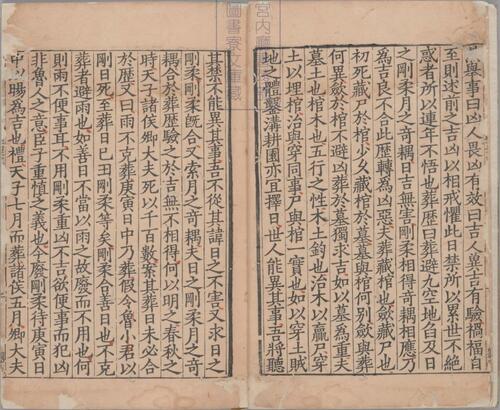 宮内廳
圖書寮文庫藏
舉事曰凶人畏凶有效曰吉人兾吉有驗禍福自
至則述前之吉凶以相戒懼此日禁所以累世不絶
惑者所以連年不悟也葬歷曰葬避九空地臽及日
之剛柔月之奇耦日吉無害剛柔相得奇耦相應乃
為吉良不合此歷轉為凶惡夫葬藏棺也斂藏尸也
初死藏尸於棺少久藏棺於墓墓與棺何別斂與葬
何異斂於棺不避凶葬於墓獨求吉如以墓為重夫
墓土也棺木也五行之性木土鈞也治木以贏尸穿
土以埋棺治與穿同事尸與棺一實也如以穿土賊
地之體鑿溝耕園亦宜擇日世人能異其事吾將聽
其禁不能異其事吾不從其諱日之不害又求日之
剛柔剛柔旣合又索月之奇耦夫日之剛柔月之奇
耦合於葬歷驗之於吉無不相得何以明之春秋之
時天子諸侯卿大夫死以千百數案其葬日未必合
於歷又曰雨不克葬庚寅日中乃葬假令魯小君以
剛日死至葬日己丑剛柔等矣剛柔合善日也不克
葬者避雨也如善日不當以雨之故廢而不用也何
則雨不便事耳不用剛柔重凶不吉欲便事而犯凶
非魯人之意臣子重慎之義也今廢剛柔待庚寅日
中以暘為吉也禮天子七月而葬諸侯五月卿大夫